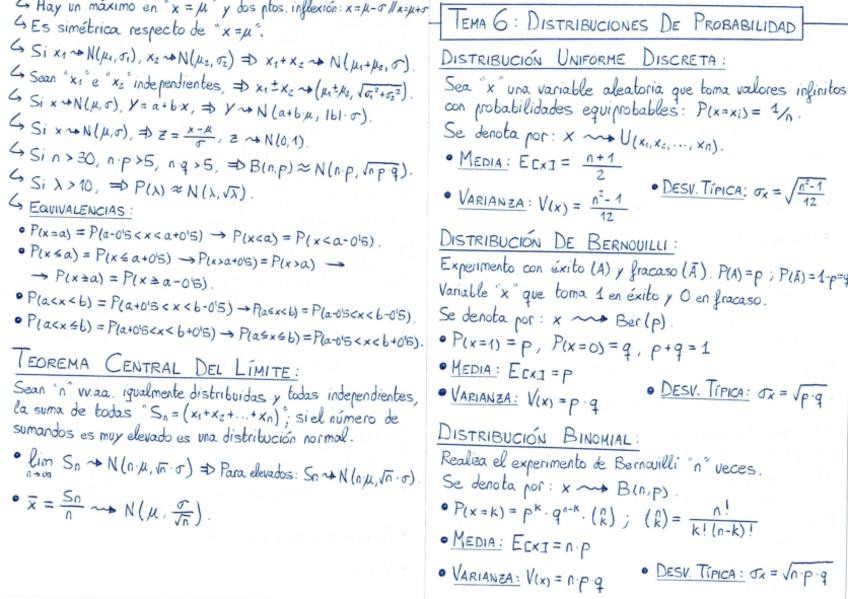 ↳ Hay un máximo en "x = μ" y dos ptos. inflexión: x=μ-σ // x=μ+σ
↳ Es simétrica respecto de "x=μ".
↳ Si x₁ ⇝ N(μ₁,σ₁), x₂ ⇝ N(μ₂,σ₂) ⇒ x₁+x₂ ⇝ N(μ₁+μ₂,σ).
↳ Sean "x₁" e "x₂" independientes, ⇒ x₁±x₂ ⇝ (μ₁+μ₂, √(σ₁²+σ₂²)).
↳ Si x ⇝ N(μ,σ), Y=a+b·x, ⇒ Y ⇝ N(a+b·μ, |b|·σ).
↳ Si x ⇝ N(μ,σ), ⇒ z = (x-μ)/σ, z ⇝ N(0,1).
↳ Si n>30, n·p>5, n·q>5, ⇒ B(n,p) ≈ N(n·p, √(n·p·q)).
↳ Si λ>10, ⇒ P(λ) ≈ N(λ,√λ).
↳ EQUIVALENCIAS:
• P(x=a) = P(a-0'5<x<a+0'5) → P(x<a) = P(x<a-0'5).
• P(x≤a) = P(x≤a+0'5) → P(x>a+0'5) = P(x>a) →
→ P(x≥a) = P(x≥a-0'5).
• P(a<x<b) = P(a+0'5<x<b-0'5) → P(a≤x<b) = P(a-0'5<x<b-0'5).
• P(a<x≤b) = P(a+0'5<x<b+0'5) → P(a≤x≤b) = P(a-0'5<x<b+0'5).
TEOREMA CENTRAL DEL LÍMITE:
Sean "n" vv.aa. igualmente distribuidas y todas independientes,
la suma de todas "Sₙ = (x₁+x₂+...+xₙ)"; si el número de
sumandos es muy elevado es una distribución normal.
• lim n→∞ Sₙ ⇝ N(n·μ, √n·σ) ⇒ Para elevados: Sₙ ⇝ N(n·μ, √n·σ).
• x̄ = Sₙ/n ⇝ N(μ, σ/√n).
TEMA 6: DISTRIBUCIONES DE PROBABILIDAD
DISTRIBUCIÓN UNIFORME DISCRETA:
Sea "x" una variable aleatoria que toma valores infinitos
con probabilidades equiprobables: P(x=xᵢ) = 1/n.
Se denota por: x ⇝ U(x₁,x₂,...,xₙ).
• MEDIA: E[x] = (n+1)/2
• VARIANZA: V(x) = (n²-1)/12 • DESV. TÍPICA: σₓ = √((n²-1)/12)
DISTRIBUCIÓN DE BERNOUILLI:
Experimento con éxito (A) y fracaso (Ā). P(A)=p ; P(Ā)=1-p=q
Variable "x" que toma 1 en éxito y 0 en fracaso.
Se denota por: x ⇝ Ber(p).
• P(x=1) = p, P(x=0) = q, p+q = 1
• MEDIA: E[x] = p
• VARIANZA: V(x) = p·q • DESV. TÍPICA: σₓ = √(p·q)
DISTRIBUCIÓN BINOMIAL:
Realiza el experimento de Bernouilli "n" veces.
Se denota por: x ⇝ B(n,p).
• P(x=k) = pᵏ · qⁿ⁻ᵏ · (n k) ; (n k) = n! / k!(n-k)!
• MEDIA: E[x] = n·p
• VARIANZA: V(x) = n·p·q • DESV. TÍPICA: σₓ = √(n·p·q)